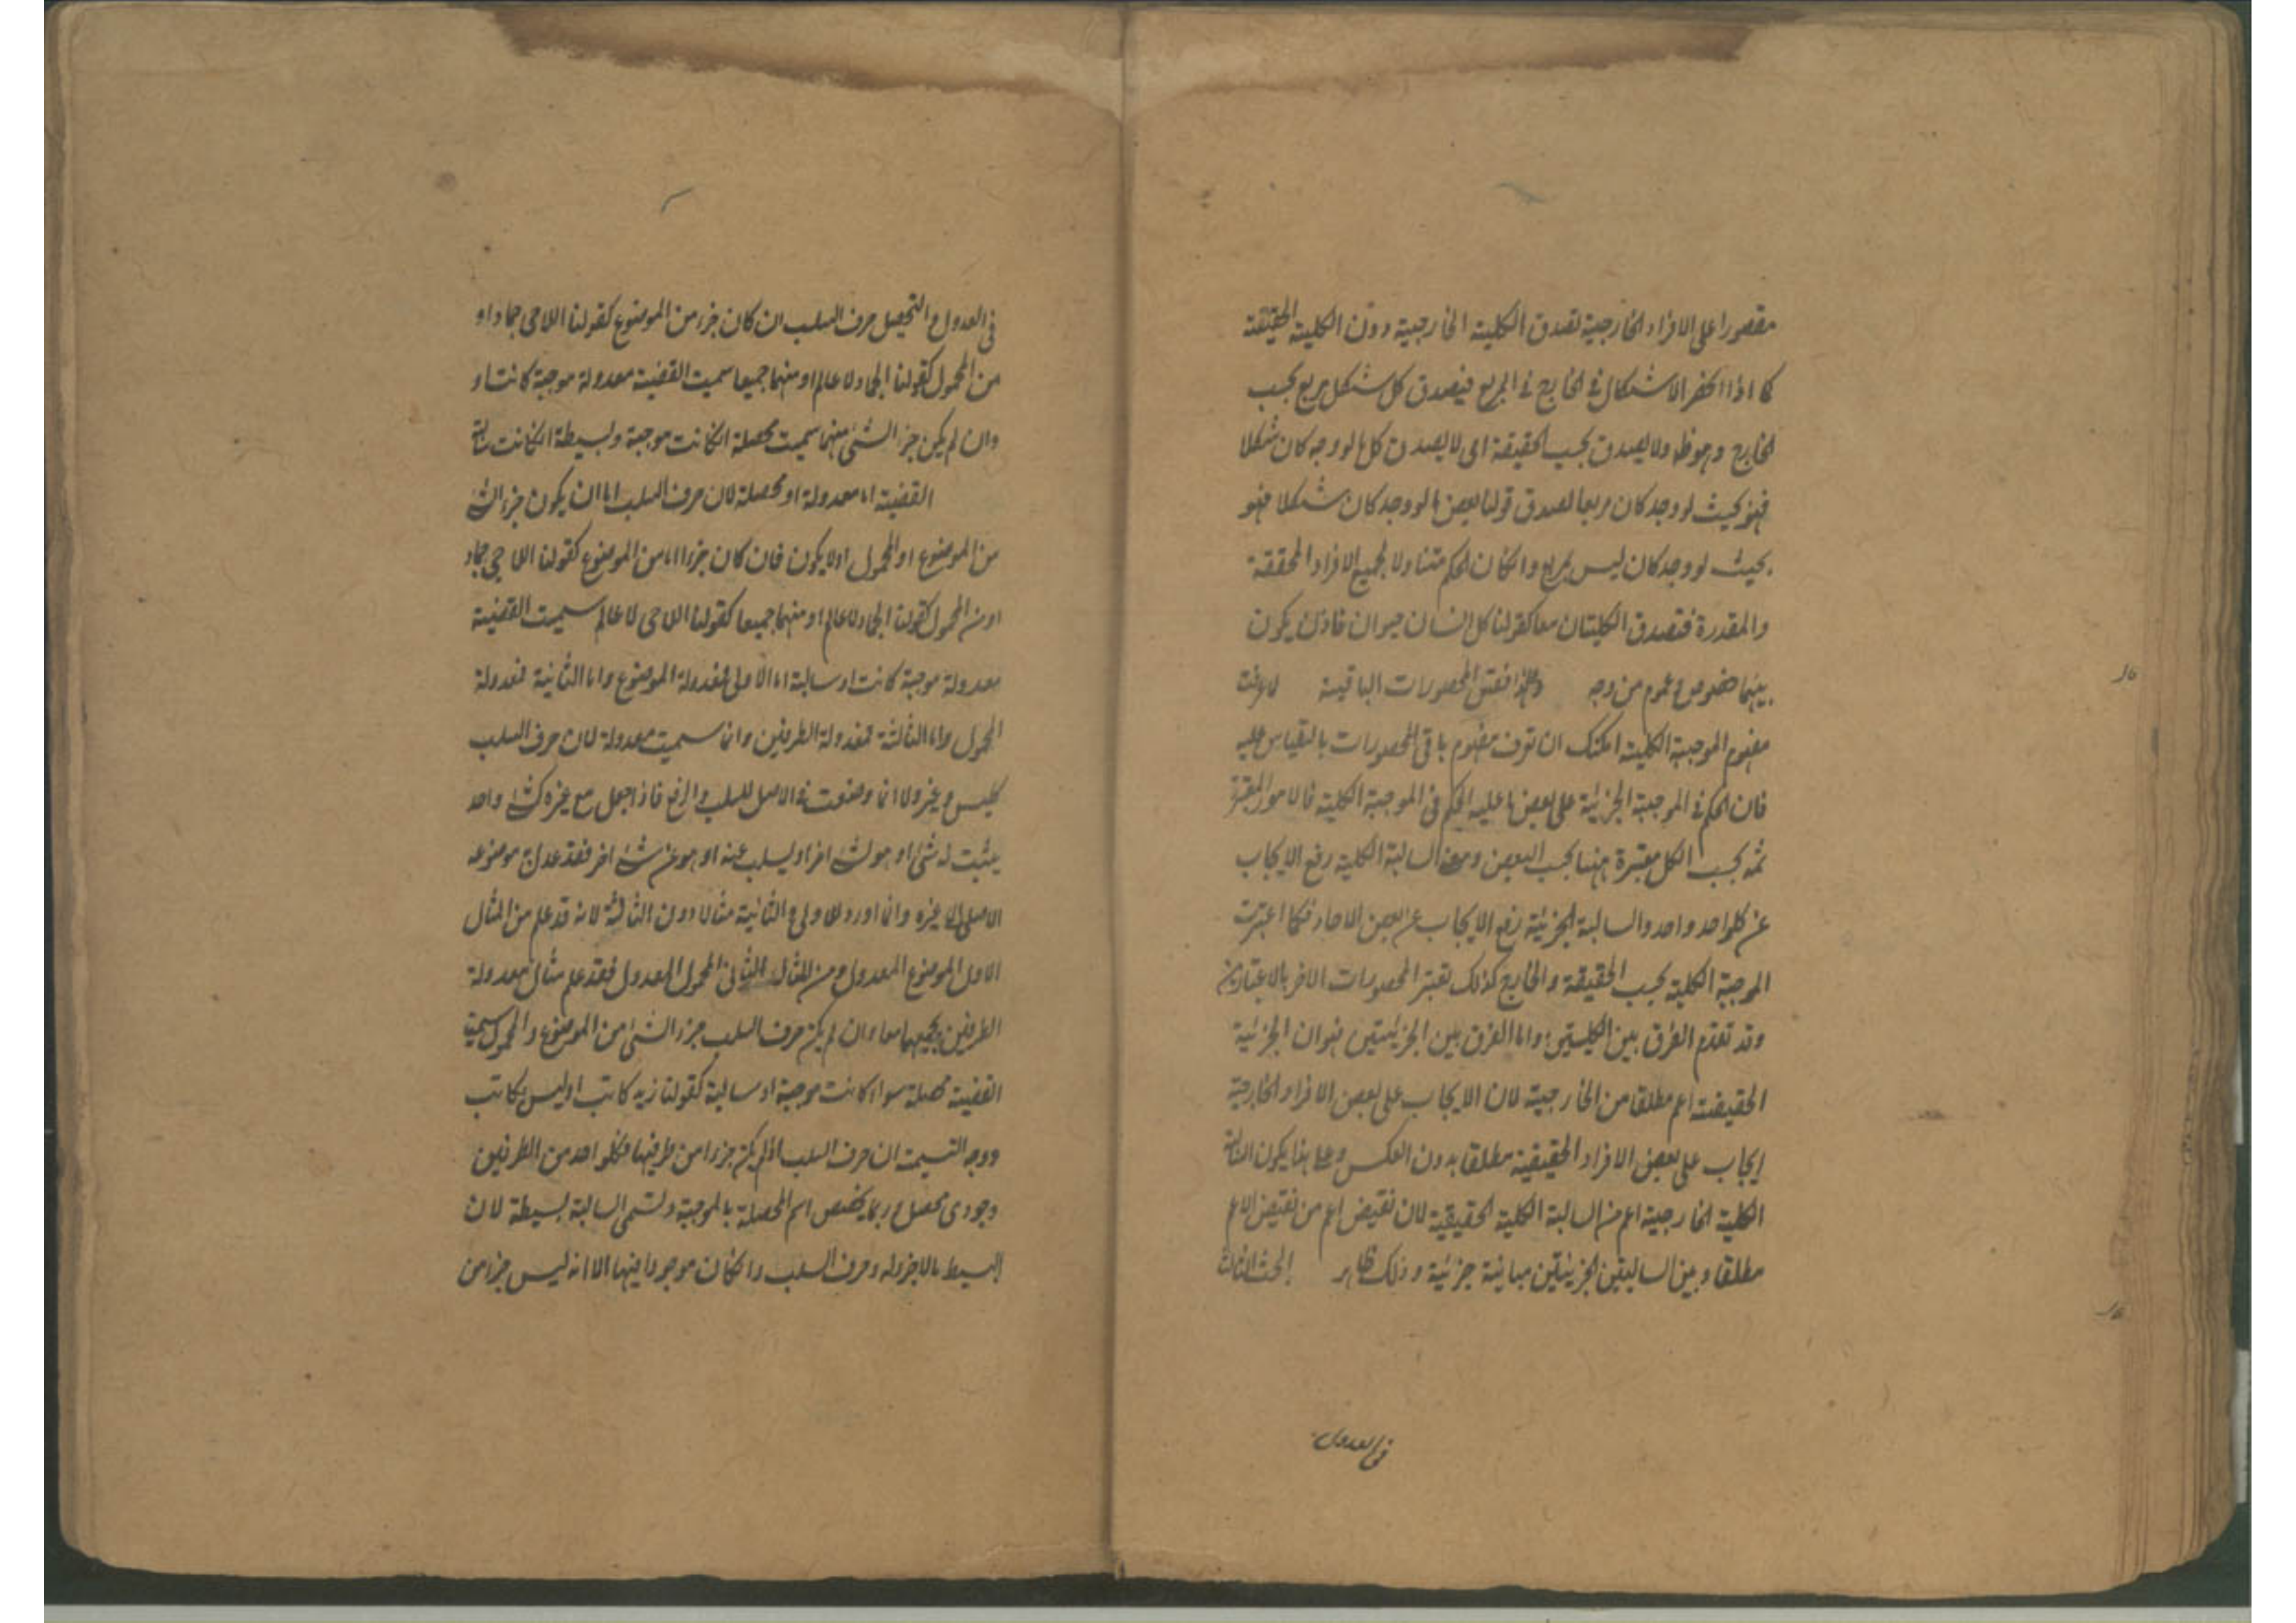 مقصورا على الافراد الخارجية تصدق الكلية الخارجية دون الكلية الحقيقية
كما اذا انحصر الاشكال في الخارج في المربع فيصدق كل شكل مربع بحسب
الخارج وهو ظ ولا يصدق بحسب الحقيقة اى لا يصدق كل ما لو وجد كان شكلا
فهو بحيث لو وجد كان مربعا لصدق قولنا بعض ما لو وجد كان شكلا فهو
بحيث لو وجد كان ليس بمربع وانكان الحكم متناولا لجميع الافراد المحققة
والمقدرة فتصدق الكليتان معا كقولنا كل انسان حيوان فاذن يكون
بينهما خصوص وعموم من وجه وعلى هذا فقس المحصورات الباقية لما عرفت
مفهوم الموجبة الكلية امكنك ان تعرف مفهوم باقي المحصورات بالقياس عليه
فان الحكم في الموجبة الجزئية على بعض ما عليه الحكم في الموجبة الكلية فالامور المعتبرة
ثمه بحسب الكل معتبرة ههنا بحسب البعض ومعنى السالبة الكلية رفع الايجاب
عن كلواحد واحد والسالبة الجزئية رفع الايجاب عن بعض الاحاد فكما اعتبرت
الموجبة الكلية بحسب الحقيقة والخارج كذلك تعتبر المحصورات الاخر بالاعتبارين
وقد تقدم الفرق بين الكليتين واما الفرق بين الجزئيتين فهو ان الجزئية
الحقيقية اعم مطلقا من الخارجية لان الايجاب على بعض الافراد الخارجية
ايجاب على بعض الافراد الحقيقية مطلقا بدون العكس وعلى هذا يكون السالبة
الكلية الخارجية اعم من السالبة الكلية الحقيقية لان نقيض اعم من نقيض الاعم
مطلقا وبين السالبتين الجزئيتين مباينة جزئية وذلك ظاهر البحث الثالث
في العدول
في العدول والتحصيل حرف السلب ان كان جزء من الموضوع كقولنا اللاحى جماد او
من المحمول كقولنا الجماد لا عالم او منهما جميعا سميت القضية معدولة موجبة كانت او
وان لم يكن جزء الشئ منهما سميت محصلة انكانت موجبة وبسيطة انكانت سالبة
القضية اما معدولة او محصلة لان حرف السلب اما ان يكون جزء الشئ
من الموضوع او المحمول اولا يكون فان كان جزءا اما من الموضوع كقولنا اللاحى جماد
او من المحمول كقولنا الجماد لا عالم او منهما جميعا كقولنا اللاحى لا عالم سميت القضية
معدولة موجبة كانت او سالبة اما الاولى فمعدولة الموضوع واما الثانية فمعدولة
المحمول واما الثالثة فمعدولة الطرفين وانما سميت معدولة لان حرف السلب
كليس وغير ولا انما وضعت في الاصل للسلب والرفع فاذا جعل مع غيره كشئ واحد
يثبت له شئ او هو لشئ اخر او يسلب عنه او هو عن شئ اخر فقد عدل به موضوعه
الاصلى الى غيره وانما اورد للاولى والثانية مثالا دون الثالثة لانه قد علم من المثال
الاول الموضوع المعدول ومن المثال الثانى المحمول المعدول فقد علم مثال معدولة
الطرفين بجمعهما معا وان لم يكن حرف السلب جزء الشئ من الموضوع والمحمول سميت
القضية محصلة سواء كانت موجبة او سالبة كقولنا زيد كاتب او ليس بكاتب
ووجه التسمية ان حرف السلب اذا لم يكن جزءا من طرفيها فكلواحد من الطرفين
وجودى محصل وربما يخصص اسم المحصلة بالموجبة وتسمى السالبة بسيطة لان
البسيط ما لا جزء له وحرف السلب وانكان موجودا فيها الا انه ليس جزء من